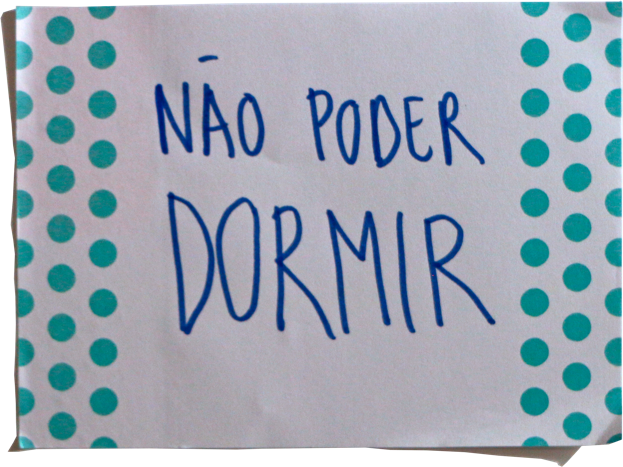 NÃO PODER
DORMIR